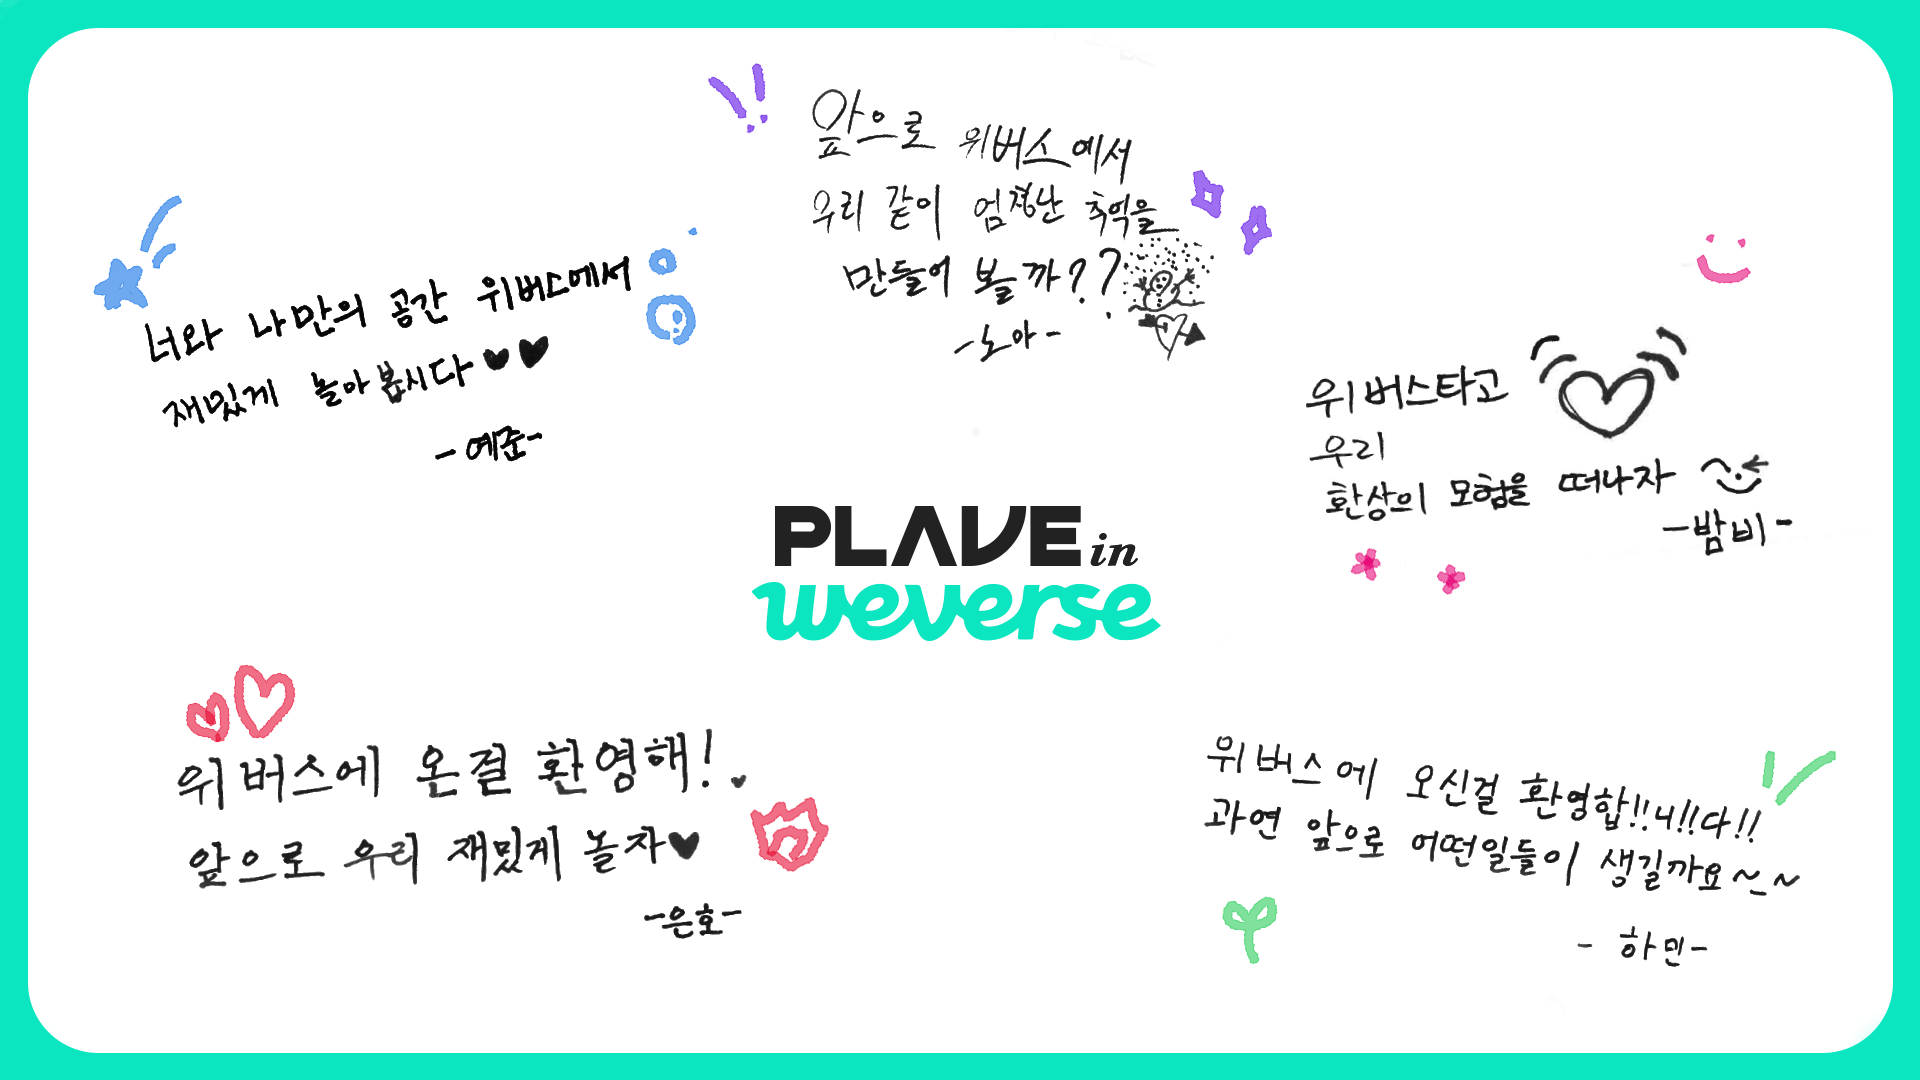 너와 나만의 공간 위버스에서
재밌게 놀아봅시다♥♥
-예준-
앞으로 위버스에서
우리 같이 엄청난 추억을
만들어 볼까??
-노아-
위버스타고
우리
환상의 모험을 떠나자
-밤비-
PLAVE in
weverse
위버스에 온걸 환영해!
앞으로 우리 재밌게 놀자♥
-은호-
위버스에 오신걸 환영합!!니!!다!!
과연 앞으로 어떤일들이 생길까요~~
- 하민-